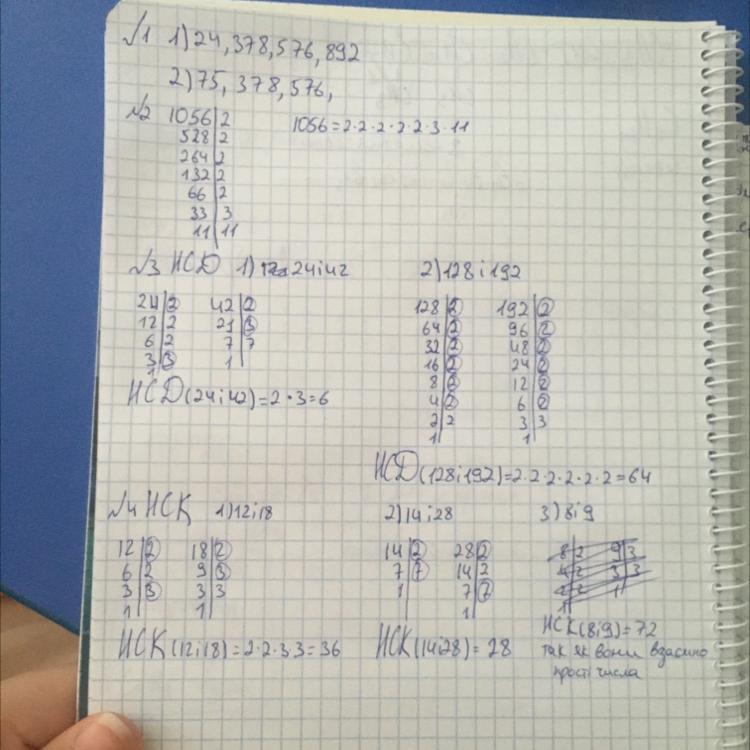 №1 1) 24, 378, 576, 892
2) 75, 378, 576,
№2 1056 | 2 1056 = 2·2·2·2·2·3·11
528 | 2
264 | 2
132 | 2
66 | 2
33 | 3
11 | 11
№3 НСД 1) 24 і 42 2) 128 і 192
24 | 2 42 | 2 128 | 2 192 | 2
12 | 2 21 | 3 64 | 2 96 | 2
6 | 2 7 | 7 32 | 2 48 | 2
3 | 3 1 | 16 | 2 24 | 2
1 8 | 2 12 | 2
НСД (24 і 42) = 2·3 = 6 4 | 2 6 | 2
2 | 2 3 | 3
1 | 1 |
НСД (128 і 192) = 2·2·2·2·2·2 = 64
№4 НСК 1) 12 і 18 2) 14 і 28 3) 8 і 9
12 | 2 18 | 2 14 | 2 28 | 2 8 | 2 9 | 3
6 | 2 9 | 3 7 | 7 14 | 2 4 | 2 3 | 3
3 | 3 3 | 3 1 | 7 | 7 2 | 2 1 |
1 | 1 | 1 | 1 |
НСК (8 і 9) = 72
НСК (12 і 18) = 2·2·3·3 = 36 НСК (14 і 28) = 28 так як вони взаємно
прості числа